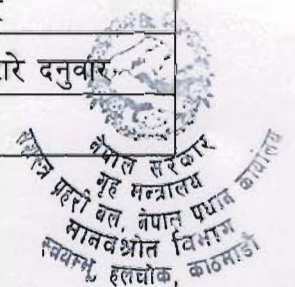 रे दनुवार
नेपाल सरकार
गृह मन्त्रालय
सशस्त्र प्रहरी बल, नेपाल प्रधान कार्यालय
मानवश्रोत विभाग
स्वयम्भू, हल्चोक, काठमाडौं